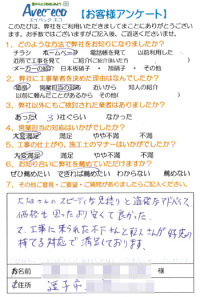 Avec-eco
エイベック エコ
【お客様アンケート】
このたびは、弊社をご利用いただきましてまことにありがとうございます。
お手数ではございますが、ご返送くださいませ。
1. どのような方法で弊社をお知りになりましたか?
チラシ ホームページ 電話帳を見て 以前利用した
近所で工事を見て ご紹介(ご紹介者
メーカーの紹介 日本坂硝子 ・ 旭硝子 ・ その他
2. 弊社に工事業者を決めた理由はなんですか?
価格 営業担当の印象 近いから 知人の紹介
以前に頼んだことがあるから その他
3. 弊社以外にもご検討された業者はありましたか?
あった ( 3 )社ぐらい なかった
4. 営業担当の対応はいかがでしたか?
大変満足 満足 やや不満 不満
5. 工事の仕上がり、施工士のマナーはいかがでしたか?
大変満足 満足 やや不満 不満
6. お知り合いに弊社を薦めていただけますか?
ぜひ薦めたい できれば薦めたい わからない 薦めない
7. その他ご意見・ご要望・ご質問がありましたらご記入ください。
スピーディな見積りと適確なアドバイス
価格も思ったより安くて良かった。
又、工事に来られた
持てる対応で満足しております。
お名前 様
ご住所 逗子市